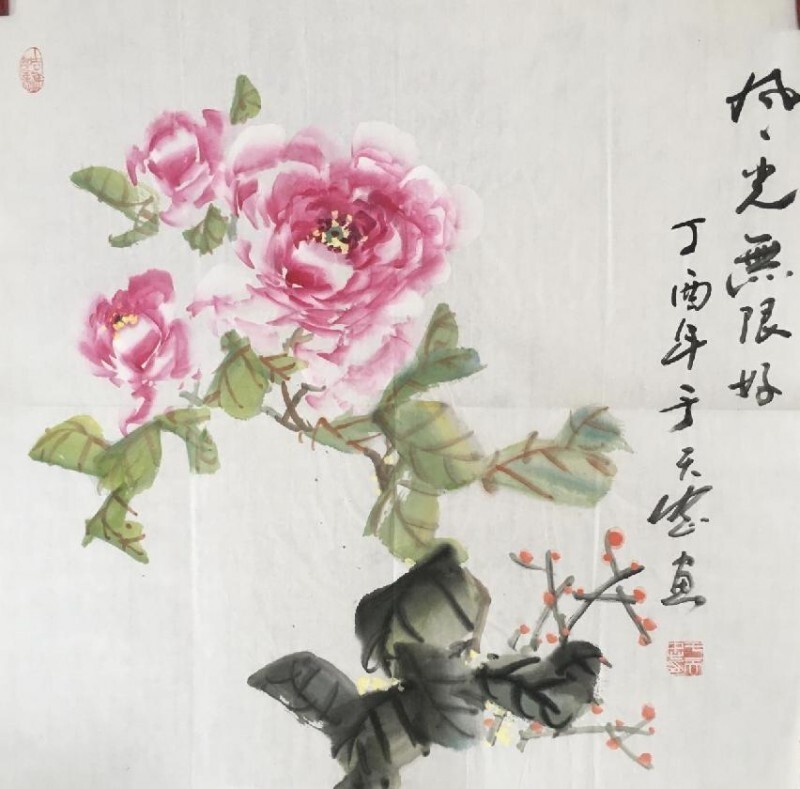 风光無限好
丁酉年于天忠画